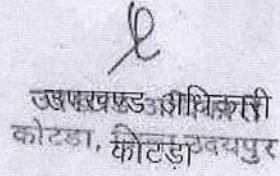 उपखण्ड अधिकारी
कोटडा, जिला उदयपुर
कोटड़ा